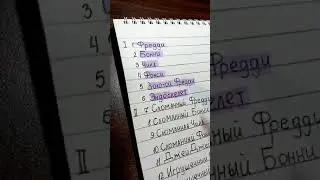 I 1 Фредди
2 Бонни
3 Чика
4 Фокси
5 Золотой Фредди
6 Эндоскелет
II 7 Сломанный Фредди
8 Сломанный Бонни
9 Сломанная Чика
10 Сломанный
11 Джей Джей
12 Игрушечный
Фредди
Бонни